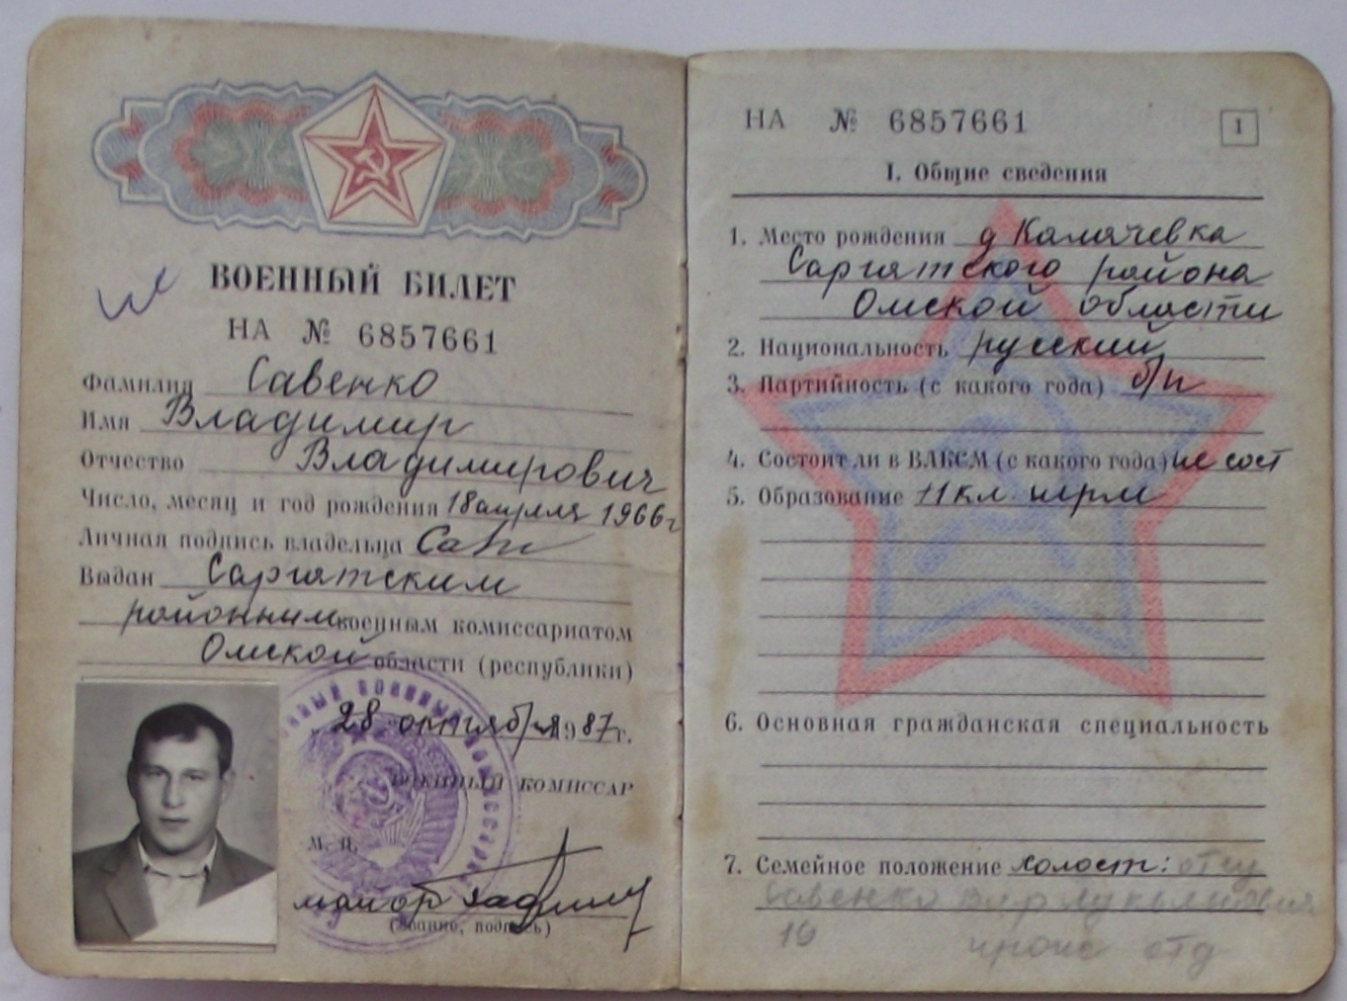 ВОЕННЫЙ БИЛЕТ
НА № 6857661
Фамилия Савенко
Имя Владимир
Отчество Владимирович
Число, месяц и год рождения 18 апреля 1966г
Личная подпись владельца Сав
Выдан Саргатским
районным военным комиссариатом
Омской области (республики)
28 октября 1987г.
ВОЕННЫЙ КОМИССАР
М. П.
майор
(звание, подпись)
НА № 6857661
1
I. Общие сведения
1. Место рождения д Калачевка
Саргатского района
Омской области
2. Национальность русский
3. Партийность (с какого года) б/п
4. Состоит ли в ВЛКСМ (с какого года) не сост
5. Образование 11 кл.
6. Основная гражданская специальность
7. Семейное положение холост: отец
Савенко Влр
19